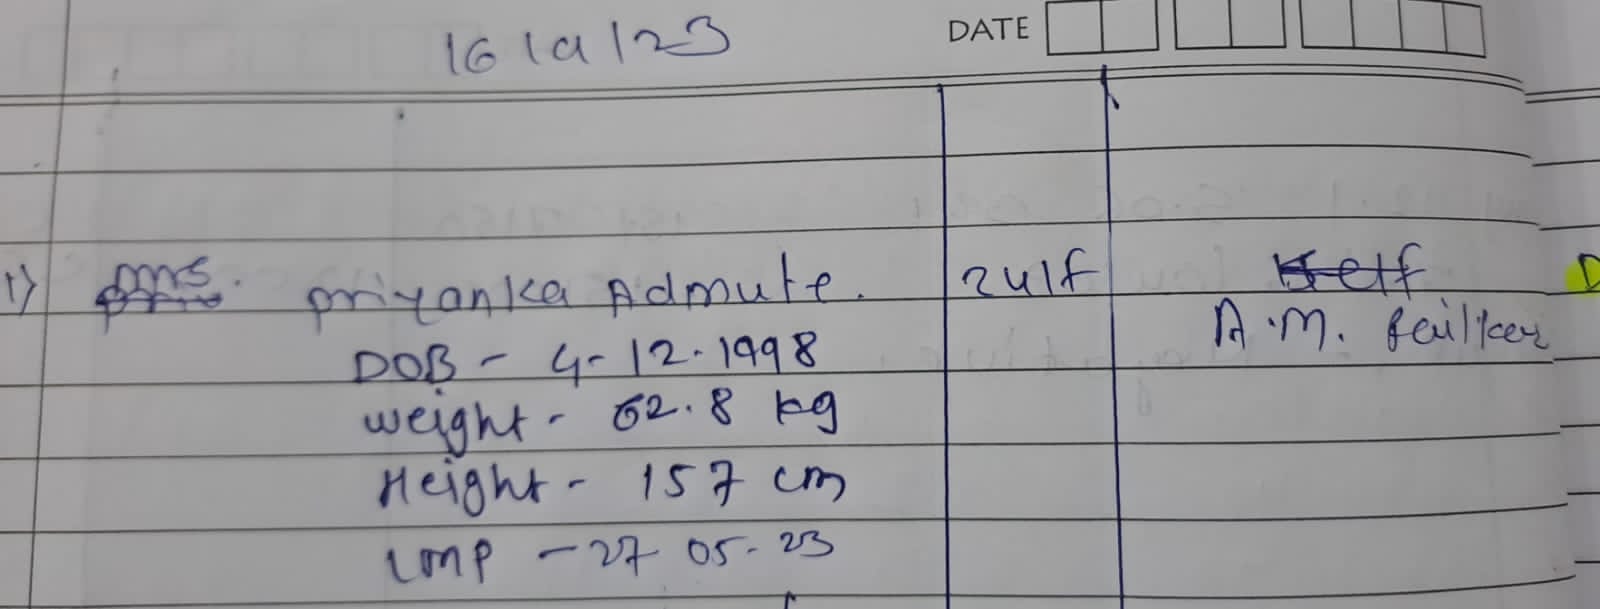 16/9/23 DATE
1) Mrs. Priyanka Admute. 24/F
A.M.
DOB - 4-12-1998
Weight - 62.8 kg
Height - 157 cm
LMP - 27 05-23
D